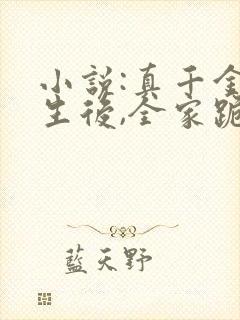 小說:真千金
生後,全家跪
藍天野